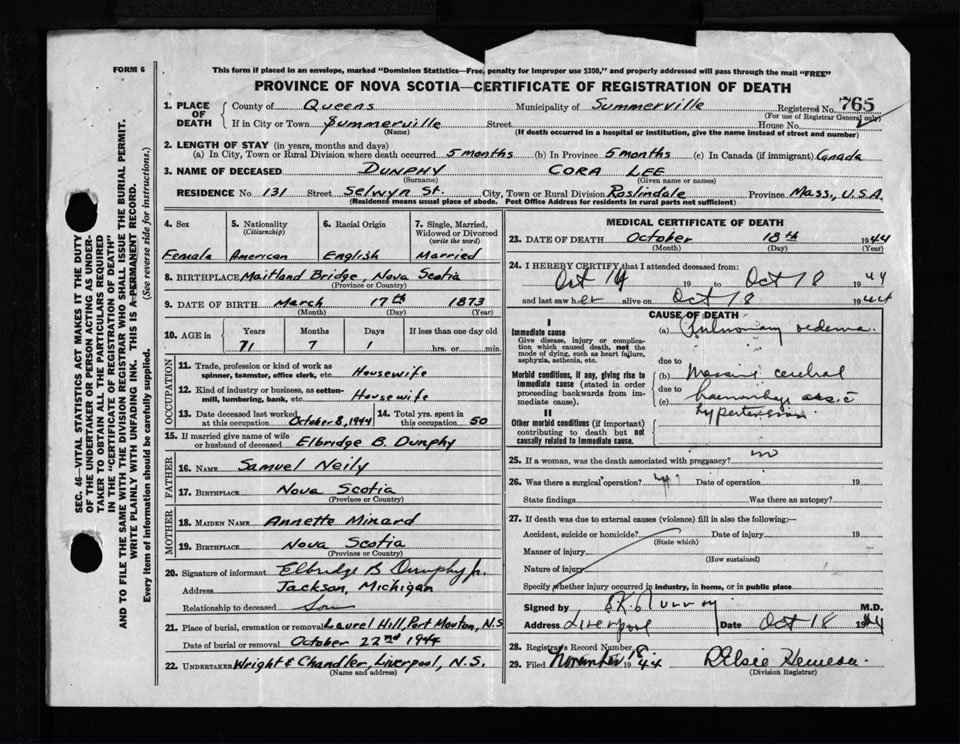 FORM 6
This form if placed in an envelope, marked "Dominion Statistics—Free, penalty for improper use $300," and properly addressed will pass through the mail "FREE"
PROVINCE OF NOVA SCOTIA—CERTIFICATE OF REGISTRATION OF DEATH
1. PLACE OF DEATH { County of Queens Municipality of Summerville Registered No. 765
(For use of Registrar General only)
If in City or Town Summerville Street House No.
(Name) (If death occurred in a hospital or institution, give the name instead of street and number)
2. LENGTH OF STAY (in years, months and days)
(a) In City, Town or Rural Division where death occurred 5 months (b) In Province 5 months (c) In Canada (if immigrant) Canada
3. NAME OF DECEASED DUNPHY CORA LEE
(Surname) (Given name or names)
RESIDENCE No 131 Street Selwyn St. City, Town or Rural Division Roslindale Province Mass., U.S.A.
(Residence means usual place of abode. Post Office Address for residents in rural parts not sufficient)
4. Sex 5. Nationality (Citizenship) 6. Racial Origin 7. Single, Married, Widowed or Divorced (write the word)
Female American English Married
8. BIRTHPLACE Maitland Bridge, Nova Scotia
(Province or Country)
9. DATE OF BIRTH March 17th 1873
(Month) (Day) (Year)
10. AGE in Years Months Days If less than one day old
71 7 1 hrs. or min.
OCCUPATION
11. Trade, profession or kind of work as spinner, teamster, office clerk, etc. Housewife
12. Kind of industry or business, as cotton-mill, lumbering, bank, etc. Housewife
13. Date deceased last worked at this occupation October 8, 1944 14. Total yrs. spent in this occupation 50
15. If married give name of wife or husband of deceased Elbridge B. Dunphy
FATHER
16. NAME Samuel Neily
17. BIRTHPLACE Nova Scotia
(Province or Country)
MOTHER
18. MAIDEN NAME Annette Minard
19. BIRTHPLACE Nova Scotia
(Province or Country)
20. Signature of informant Elbridge B Dunphy Jr.
Address Jackson, Michigan
Relationship to deceased Son
21. Place of burial, cremation or removal Laurel Hill, Port Mouton, N.S
Date of burial or removal October 22nd 1944
22. UNDERTAKER Wright & Chandler, Liverpool, N.S.
(Name and address)
MEDICAL CERTIFICATE OF DEATH
23. DATE OF DEATH October 18th 1944
(Month) (Day) (Year)
24. I HEREBY CERTIFY that I attended deceased from:
Oct 14 19 to Oct 18 1944
and last saw her alive on Oct 18 1944
CAUSE OF DEATH
I
Immediate cause (a) Pulmonary oedema
Give disease, injury or complication which caused death, not the mode of dying, such as heart failure, asphyxia, asthenia, etc.
due to
Morbid conditions, if any, giving rise to immediate cause (stated in order proceeding backwards from immediate cause). (b) Massive cerebral
due to
(c) haemorrhage assoc
hypertension
II
Other morbid conditions (if important) contributing to death but not causally related to immediate cause.
25. If a woman, was the death associated with pregnancy? no
26. Was there a surgical operation? Date of operation 19
State findings Was there an autopsy?
27. If death was due to external causes (violence) fill in also the following:—
Accident, suicide or homicide? Date of injury 19
(State which)
Manner of injury
(How sustained)
Nature of injury
Specify whether injury occurred in industry, in home, or in public place
Signed by M.D.
Address Liverpool Date Oct 18 1944
28. Registrar's Record Number 8
29. Filed November 1944
(Division Registrar)
SEC. 46—VITAL STATISTICS ACT MAKES IT THE DUTY
OF THE UNDERTAKER OR PERSON ACTING AS UNDER-
TAKER TO OBTAIN ALL THE PARTICULARS REQUIRED
IN THE "CERTIFICATE OF REGISTRATION OF DEATH"
AND TO FILE THE SAME WITH THE DIVISION REGISTRAR WHO SHALL ISSUE THE BURIAL PERMIT.
WRITE PLAINLY WITH UNFADING INK. THIS IS A PERMANENT RECORD.
Every item of information should be carefully supplied. (See reverse side for instructions.)